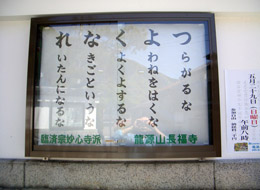 つらがるな
よわねをはくな
くよくよするな
なきごというな
れいたんになるな
龍源山長福寺
臨済宗妙心寺派
五月二十九日(日曜日)
午前八時